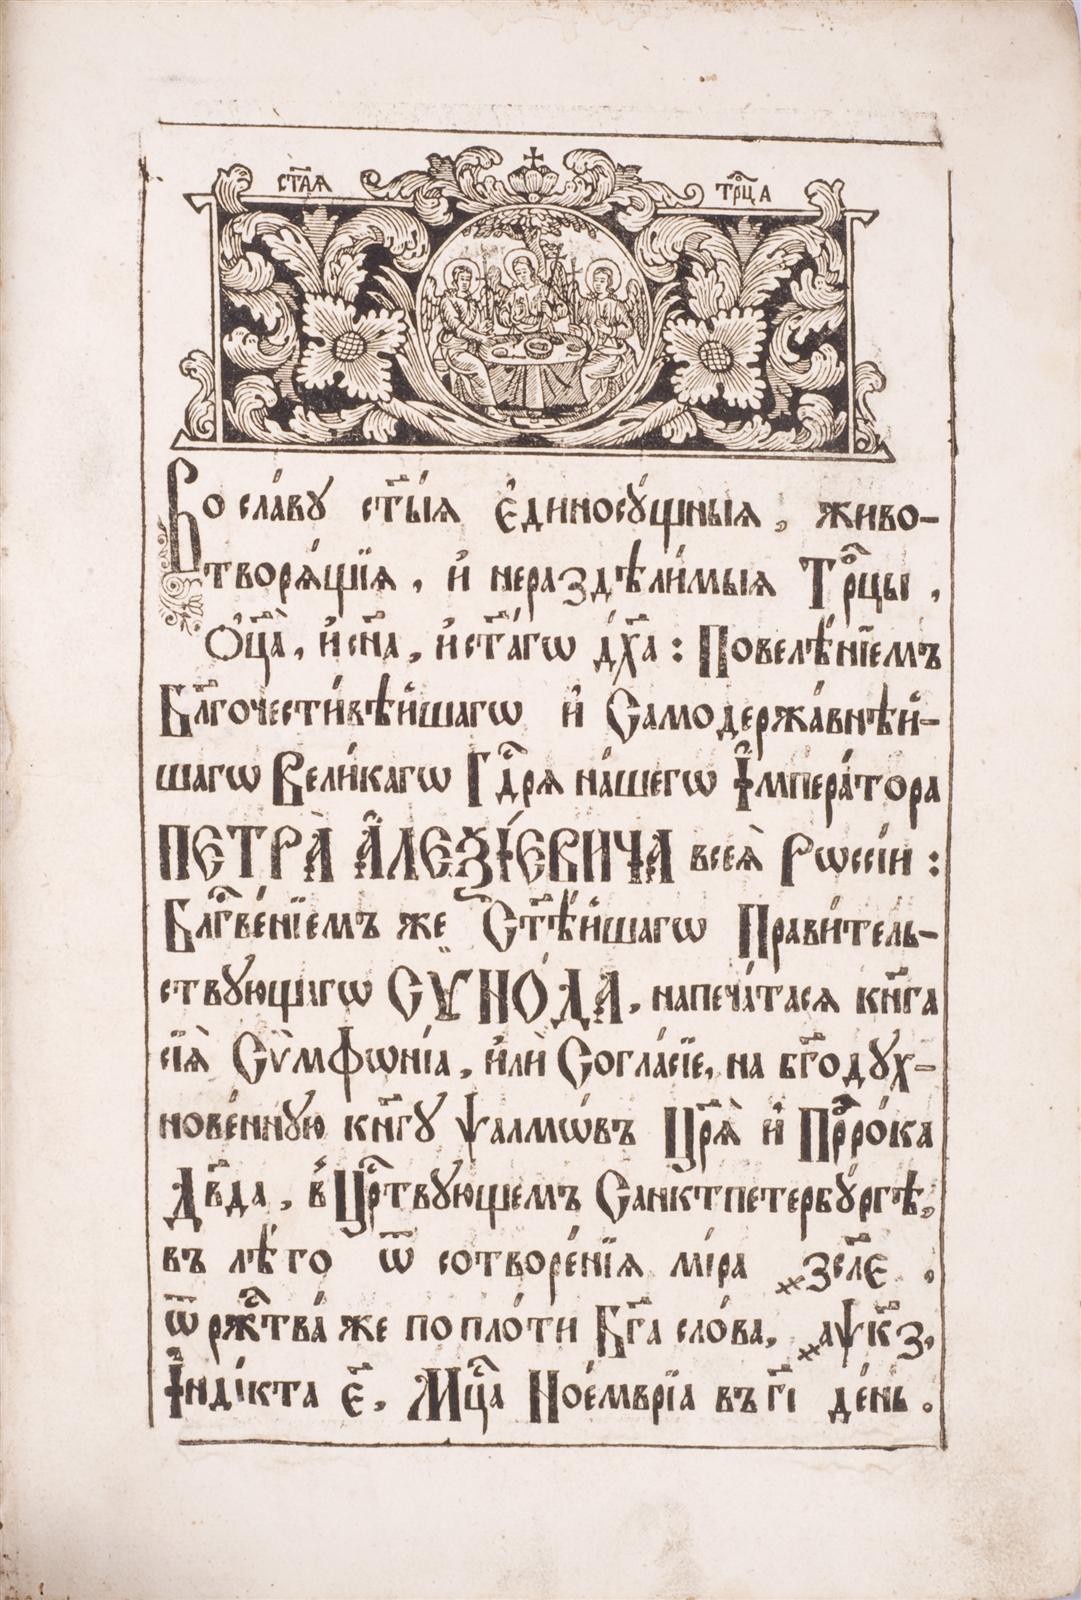 СТ҃АѦ ТРⷪ҇ЦА
Во сла́вꙋ ст҃ы́ѧ є҆диносꙋ́щныѧ, живо-
творѧ́щїѧ, и҆ нераздѣли́мыѧ Трⷪ҇цы,
Ѻ҆ц҃а̀, и҆ сн҃а, и҆ ст҃а́гѡ дх҃а: Повелѣ́нїемъ
Бл҃гочести́вѣйшагѡ и҆ Самодержа́внѣй-
шагѡ Вели́кагѡ Гдⷭ҇рѧ на́шегѡ І҆мпера́тора
ПЕТРА̀ А҆ЛЕѮІ́ЕВИЧА всеѧ̀ Рѡссі́и:
Блгⷭ҇ве́нїемъ же Ст҃ѣ́йшагѡ Прави́тель-
ствꙋющагѡ СѴНО́ДА, напеча́тасѧ кн҃га
сїѧ̀ Сѷмфѡні́а, и҆лѝ Согла́сїе, на бг҃одꙋх-
нове́ннꙋю кн҃гꙋ ѱалмѡ́въ Цр҃ѧ̀ и҆ Прⷪ҇ро́ка
Дв҃да, в̾ Црⷭ҇твꙋющемъ Санктпетербꙋ́ргѣ,
въ лѣ́то ѿ сотворе́нїѧ мі́ра ҂зсл҃є.
ѿ ржⷭ҇тва́ же по пло́ти Бг҃а сло́ва, ҂аѱк҃з,
І҆нді́кта є҃, Мцⷭ҇а Ное́мврїа въ г҃і де́нь.